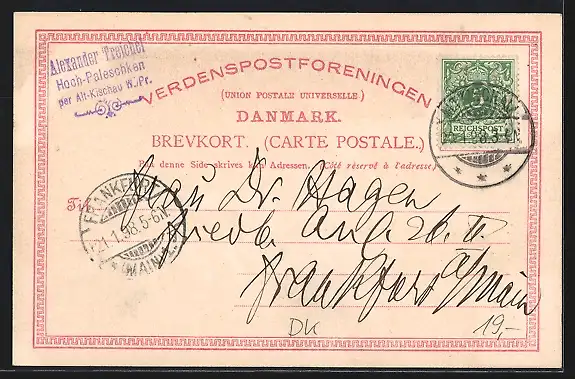 Alexander Treichel
Hoch-Paleschken
per Alt-Kischau W./Pr.
VERDENSPOSTFORENINGEN
(UNION POSTALE UNIVERSELLE.)
DANMARK.
BREVKORT. (CARTE POSTALE.)
Paa denne Side skrives kun Adressen. (Côté réservé à l'adresse)
5
REICHSPOST
98.5-6N.
Til
FRANKFURT
21.1.98.5-6N.
(MAIN)
Frau Dr. Hagen
Frankfurt a/Main
DK
19,-